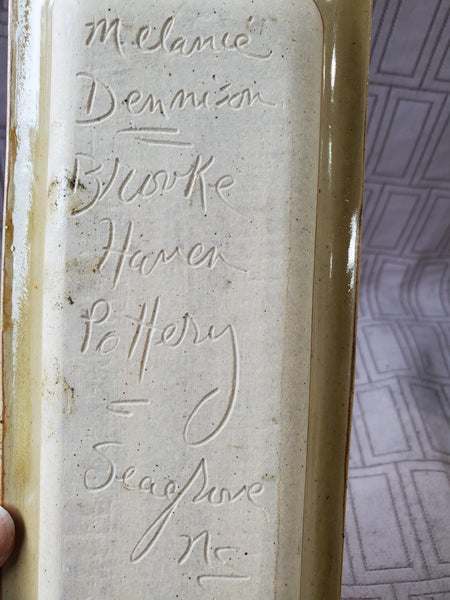 Melanie
Dennison
Brooke
Haven
Pottery
-
Seagrove
Nc